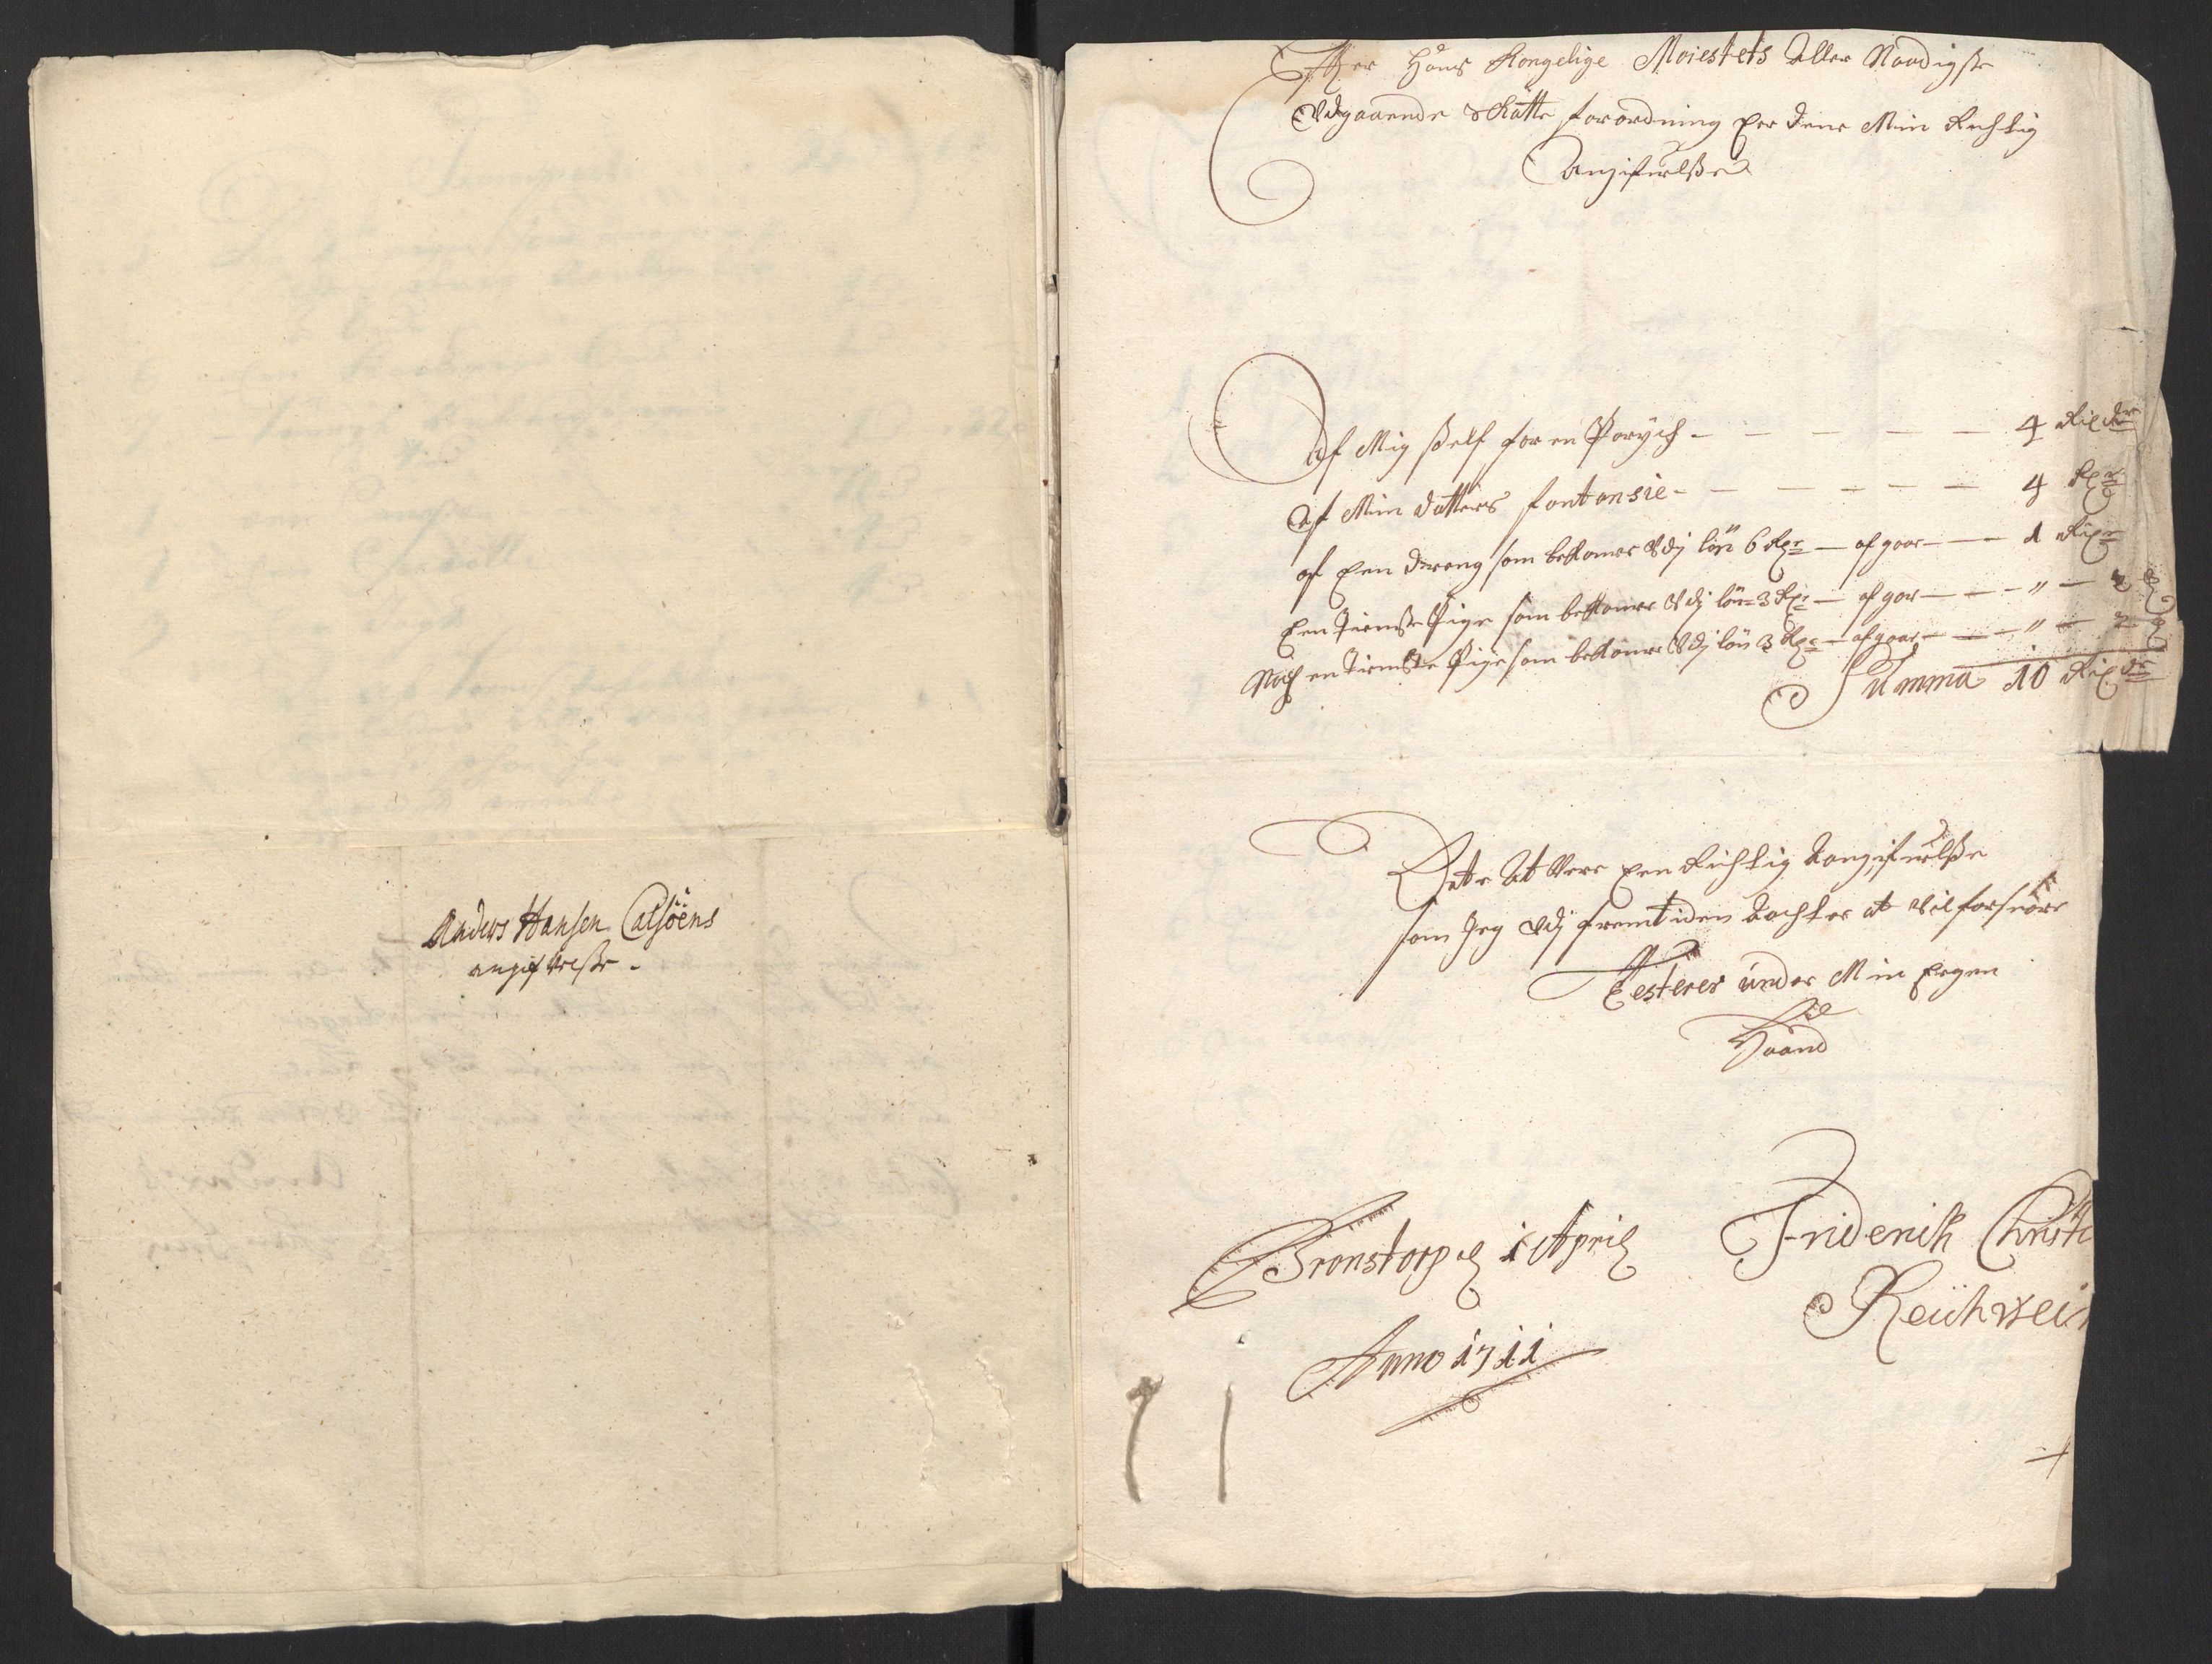 Anders Hansen Calsöens
angifvelse.
Efter Hans Kongelige Maiestets Aller Naadigste
Udgaaende Skatte forordning Er dene Min Richtig
Angifvelße
Af Mig self for en Parych - - - - - - 4 Rix dr
Af Min datters fontansie - - - - - - 4 Rxr
af Een dreng som bekomer Udj lön 6 Rxr - afgaar - - - 1 Rixr
Een tienste Pige som bekomer Udj lön 3 Rxr - afgar - - - " - 2
Noch en tienste Pige som bekomer Udj lön 3 Rxr - afgaar - - - " - 2
Summa 10 Rix dr
Dete At Vere Een Richtig Angifvelße
som Jeg Udj fremtiden Achter at vil forsvare
Testerer under Min Eegen
Haand
Bronstorp d 1 April
Anno 1711
Friderich Christ
Reichwein